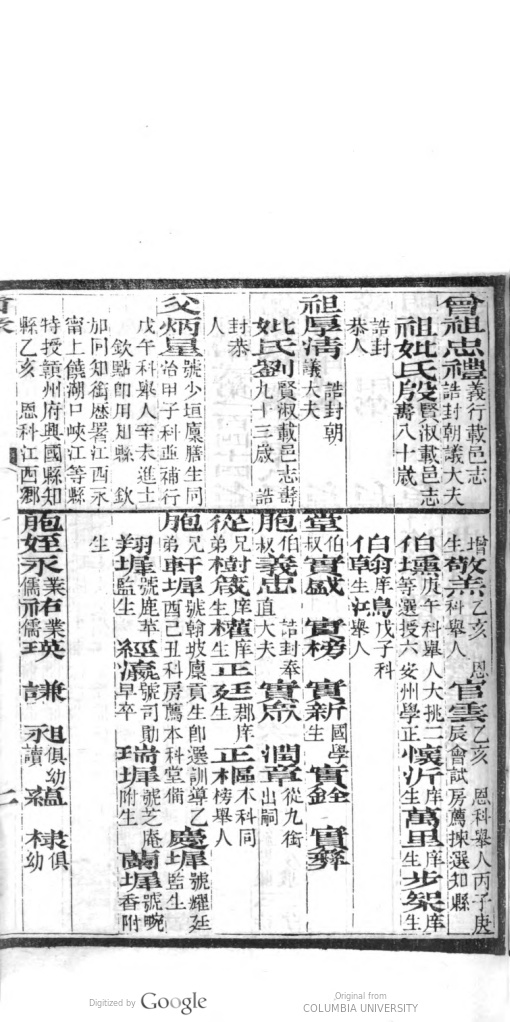 曾祖忠禮義行載邑志
誥封朝議大夫
祖妣氏殷賢淑載邑志
壽八十歲
誥封
恭人
祖厚清 誥封朝
議大夫
妣氏劉賢淑載邑志壽
九十三歲 誥
封恭
人
父炳星號少垣廩膳生同
治甲子科亞補行
戊午科舉人辛未進士
欽點即用知縣 欽
加同知銜歷署江西永
甯上饒湖口峽江等縣
特授贛州府興國縣知
縣乙亥 恩科江西鄉
增
生敬羔乙亥 恩
科舉人官雲乙亥 恩科舉人丙子庚
辰會試房薦揀選知縣
伯壎庚午科舉人大挑二
等選授六安州學正懷沂庠
生萬里庠
生步架庠
生
伯翰庠
生鳥戊子科
舉人
堂伯
叔實盛 實榜 實新國學
生實銓 實彝
胞伯
叔義忠 誥封奉
直大夫實 潤章從九銜
出嗣
從兄
弟樹箴庠
生權庠
生正廷郡庠
生正樞木科同
榜舉人
胞兄
弟軒墀號翰坡廩貢生即選訓導乙
酉己丑科房薦本科堂備慶墀號耀廷
監生
翔墀號鹿苹
監生經瀛號司勛
早卒瑞墀號芝庵
附生蘭墀號畹
香附
生
胞姪永業
儒祐業
儒瑛 謙 永讀 俱幼 蘊 棣俱
幼
Digitized by Google
Original from
COLUMBIA UNIVERSITY